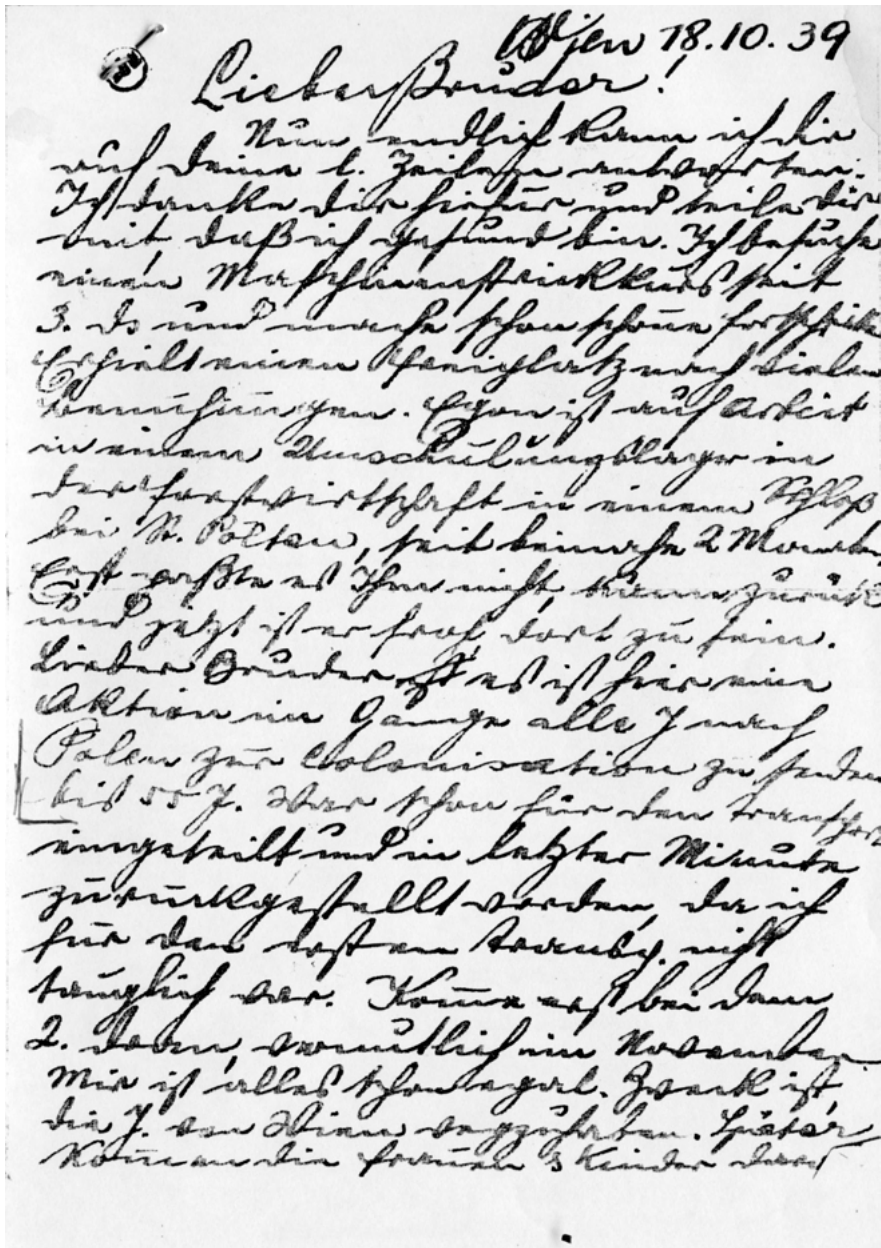 Wien 18.10.39
Lieber Bruder!
Nun endlich kann ich dir
auf deine l. Zeilen antworten.
Ich danke dir hiefür und teile dir
mit, daß ich gesund bin. Ich besuche
einen Maschinenstrickkurs seit
3. ds und mache schon schöne Fortschritte
Erhielt einen Freiplatz nach vielen
Bemühungen. Egon ist auf Arbeit
in einem Umschulungslager in
der Forstwirtschaft in einem Schloß
bei St. Pölten, seit beinahe 2 Monaten
Erst paßte es Ihm nicht, kam zurück
und jetzt ist er froh, dort zu sein.
Lieber Bruder, es ist hier eine
Aktion im Gange alle J nach
Polen zur Colonisation zu senden
bis 55 J. War schon für den Transport
eingeteilt und in letzter Minute
zurückgestellt worden, da ich
für den ersten Transp. nicht
tauglich war. Komme erst bei dem
2. dran, vermutlich im November
Mir ist alles schon egal. Zweck ist,
die J. von Wien wegzuhaben. Später
kommen die Frauen & Kinder dran